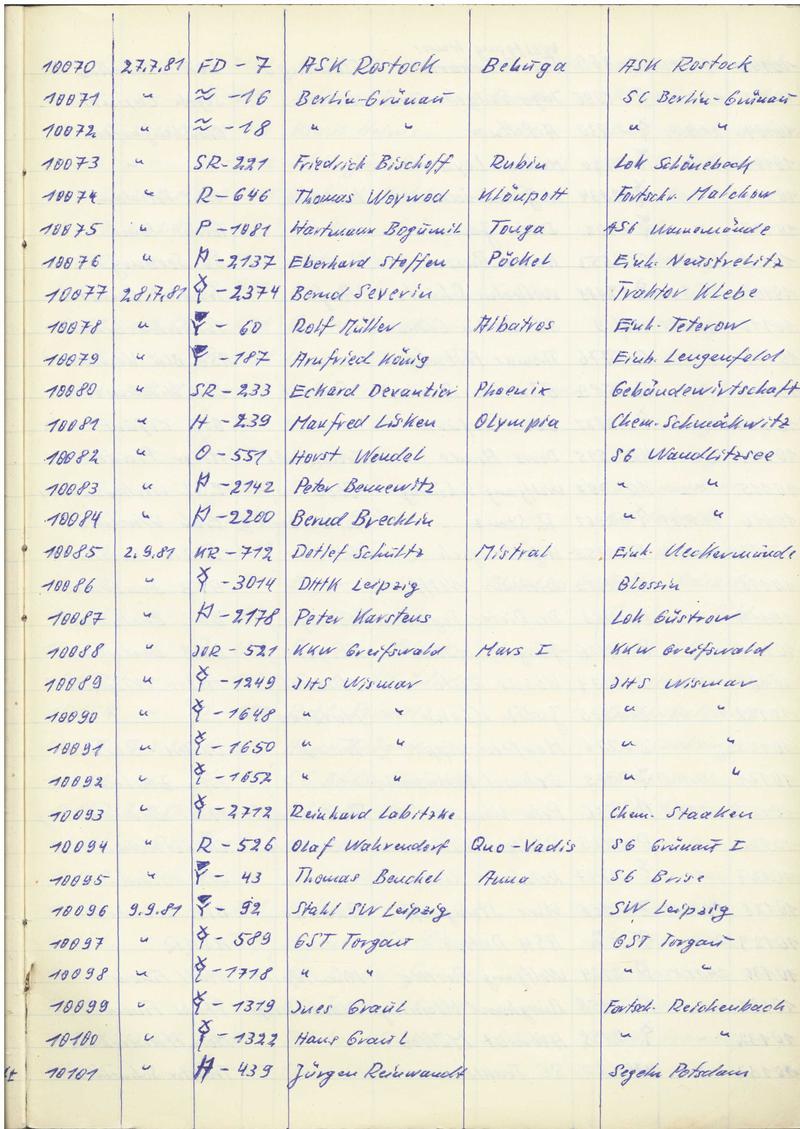 10070 27.7.81 FD - 7 ASK Rostock Beluga ASK Rostock
10071 " ≈ -16 Berlin-Grünau SC Berlin-Grünau
10072 " ≈ -18 " " " "
10073 " SR-221 Friedrich Bischoff Rubin Lok Schönebeck
10074 " R-646 Thomas Woywod Klönpott Fortschr. Malchow
10075 " P-1081 Hartmann Bogumil Tonga ASG Warnemünde
10076 " H-2137 Eberhard Steffen Päckel Einh. Neustrelitz
10077 28.7.81 -2374 Bernd Severin Traktor Klebe
10078 " - 60 Rolf Müller Albatros Einh. Teterow
10079 " - 187 Arnfried König Einh. Lengenfeld
10080 " SR-233 Eckard Devantier Phoenix Gebäudewirtschaft
10081 " H-239 Manfred Lisken Olympia Chem. Schmöckwitz
10082 " O-551 Horst Wendel SG Wandlitzsee
10083 " H-2142 Peter Bennewitz " "
10084 " H-2200 Bernd Brechlin " "
10085 2.9.81 KR-712 Detlef Schultz Mistral Einh. Ueckermünde
10086 " -3014 DHfK Leipzig Blossin
10087 " H-2178 Peter Karstens Lok Güstrow
10088 " JOR-521 KKW Greifswald Mars I KKW Greifswald
10089 " -1249 JHS Wismar JHS Wismar
10090 " -1648 " " " "
10091 " -1650 " " " "
10092 " -1652 " " " "
10093 " -2712 Reinhard Labitzke Chem. Staaken
10094 " R-526 Olaf Wahrendorf Quo-Vadis SG Grünau I
10095 " - 43 Thomas Beuchel Anna SG Brise
10096 9.9.81 - 92 Stahl SW Leipzig SW Leipzig
10097 " - 589 GST Torgau GST Torgau
10098 " -1718 " " " "
10099 " -1319 Ines Graul Fortsch. Reichenbach
10100 " -1322 Hans Graul " "
10101 " H-439 Jürgen Reinwandt Segeln Potsdam